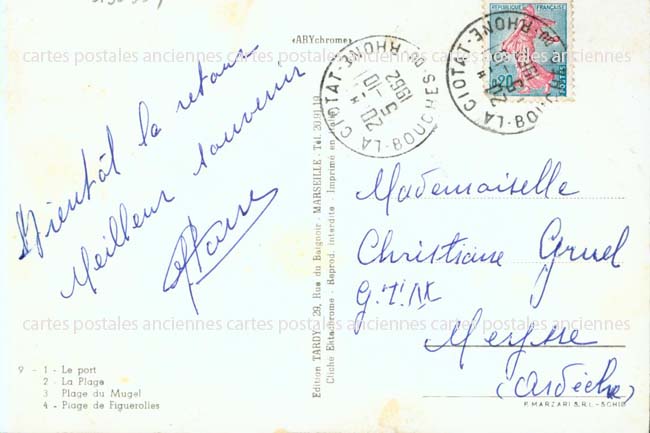 cartes postales anciennes cartes postales anciennes cartes postales anciennes
«ARYchrome»
Bientôt le retour
Meilleur souvenir
9 - 1 - Le port
2 - La Plage
3 Plage du Mugel
4 - Plage de Figuerolles
Edition TARDY - 29, Rue du Baignoir - MARSEILLE - Tél. 20.91.19
Cliché Ektachrome - Reprod. interdite - Imprimé en Italie
LA CIOTAT - BOUCHES DU RHONE
20 H
5 - 10
1962
LA CIOTAT - BOUCHES DU RHONE
REPUBLIQUE FRANÇAISE
0,20
POSTES
Mademoiselle
Christiane Gruel
Meysse
(Ardèche)
cartes postales anciennes cartes postales anciennes cartes postales anciennes
P. MARZARI S.R.L. - SCHIO